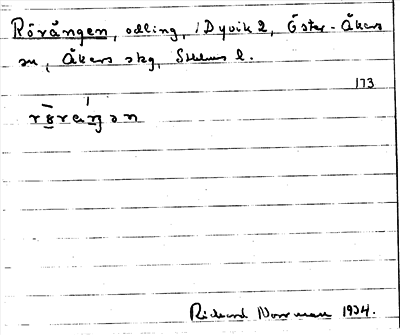 Rörängen, odling, i Dyvik 2, Öster-Åkers
sn, Åkers skg, Sthlms l.
173
rȫ̱ràŋən
Rickard Norrman 1934.